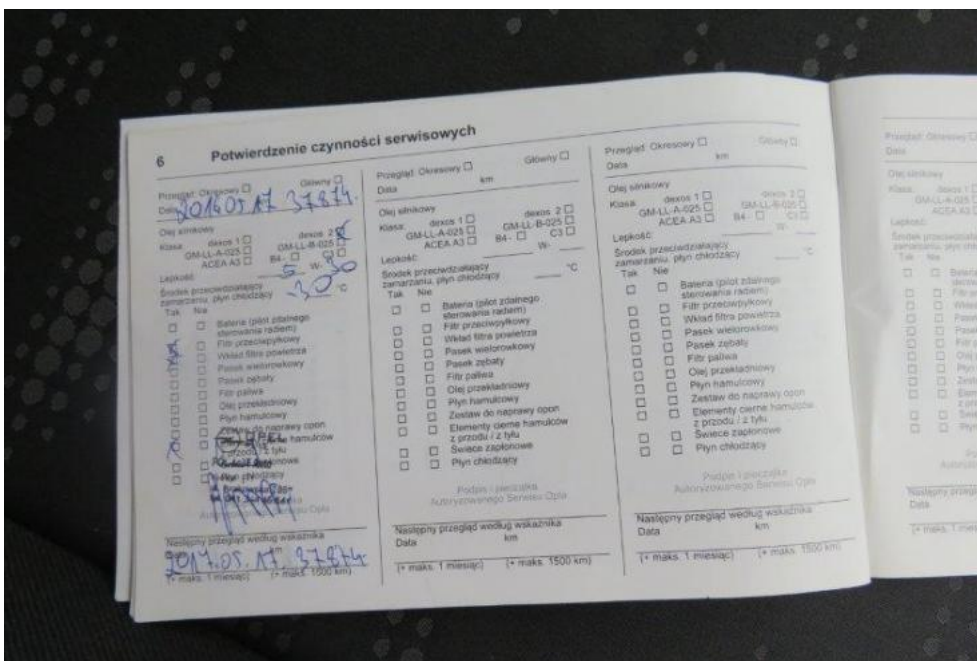 6 Potwierdzenie czynności serwisowych
Przegląd: Okresowy ☐ Główny ☐
Data 2016 05 17 37874.
Olej silnikowy
Klasa: dexos 1 ☐ dexos 2 ☒
GM-LL-A-025 ☐ GM-LL-B-025 ☐
ACEA A3 ☐ B4- ☐ C3 ☐
Lepkość: 5 W- 30
Środek przeciwdziałający
zamarzaniu, płyn chłodzący -30 °C
Tak Nie
☐ ☐ Bateria (pilot zdalnego
sterowania radiem)
☒ ☐ Filtr przeciwpyłkowy
☒ ☐ Wkład filtra powietrza
☐ ☐ Pasek wielorowkowy
☐ ☐ Pasek zębaty
☐ ☐ Filtr paliwa
☐ ☐ Olej przekładniowy
☐ ☐ Płyn hamulcowy
☐ ☐ Zestaw do naprawy opon
hamulców
z przodu / z tyłu
OPEL
Opla
Następny przegląd według wskaźnika
2017.05.17. 37874.
(+ maks. 1 miesiąc) (+ maks. 1500 km)
Przegląd: Okresowy ☐ Główny ☐
Data km
Olej silnikowy
Klasa: dexos 1 ☐ dexos 2 ☐
GM-LL-A-025 ☐ GM-LL-B-025 ☐
ACEA A3 ☐ B4- ☐ C3 ☐
Lepkość: W-
Środek przeciwdziałający
zamarzaniu, płyn chłodzący °C
Tak Nie
☐ ☐ Bateria (pilot zdalnego
sterowania radiem)
☐ ☐ Filtr przeciwpyłkowy
☐ ☐ Wkład filtra powietrza
☐ ☐ Pasek wielorowkowy
☐ ☐ Pasek zębaty
☐ ☐ Filtr paliwa
☐ ☐ Olej przekładniowy
☐ ☐ Płyn hamulcowy
☐ ☐ Zestaw do naprawy opon
☐ ☐ Elementy cierne hamulców
z przodu / z tyłu
☐ ☐ Świece zapłonowe
☐ ☐ Płyn chłodzący
Podpis i pieczątka
Autoryzowanego Serwisu Opla
Następny przegląd według wskaźnika
Data km
(+ maks. 1 miesiąc) (+ maks. 1500 km)
Przegląd: Okresowy ☐ Główny ☐
Data km
Olej silnikowy
Klasa: dexos 1 ☐ dexos 2 ☐
GM-LL-A-025 ☐ GM-LL-B-025 ☐
ACEA A3 ☐ B4- ☐ C3 ☐
Lepkość: W-
Środek przeciwdziałający
zamarzaniu, płyn chłodzący °C
Tak Nie
☐ ☐ Bateria (pilot zdalnego
sterowania radiem)
☐ ☐ Filtr przeciwpyłkowy
☐ ☐ Wkład filtra powietrza
☐ ☐ Pasek wielorowkowy
☐ ☐ Pasek zębaty
☐ ☐ Filtr paliwa
☐ ☐ Olej przekładniowy
☐ ☐ Płyn hamulcowy
☐ ☐ Zestaw do naprawy opon
☐ ☐ Elementy cierne hamulców
z przodu / z tyłu
☐ ☐ Świece zapłonowe
☐ ☐ Płyn chłodzący
Podpis i pieczątka
Autoryzowanego Serwisu Opla
Następny przegląd według wskaźnika
Data km
(+ maks. 1 miesiąc) (+ maks. 1500 km)
Przegląd: Okresowy ☐
Data
Olej silnikowy
Klasa: dexos 1 ☐
GM-LL-A-025 ☐
ACEA A3 ☐
Lepkość:
Tak Nie
Następny przegląd
Data
(+ maks. 1 miesiąc)